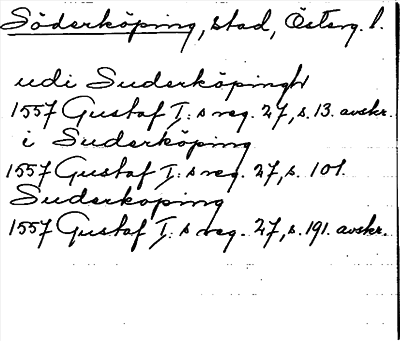 Söderköping, stad, Österg. l.
udi Suderköpingh
1557 Gustaf I:s reg. 27, s. 13. avskr.
i Suderköping
1557 Gustaf I:s reg. 27, s. 101.
Suderköping
1557 Gustaf I:s reg. 27, s. 191. avskr.